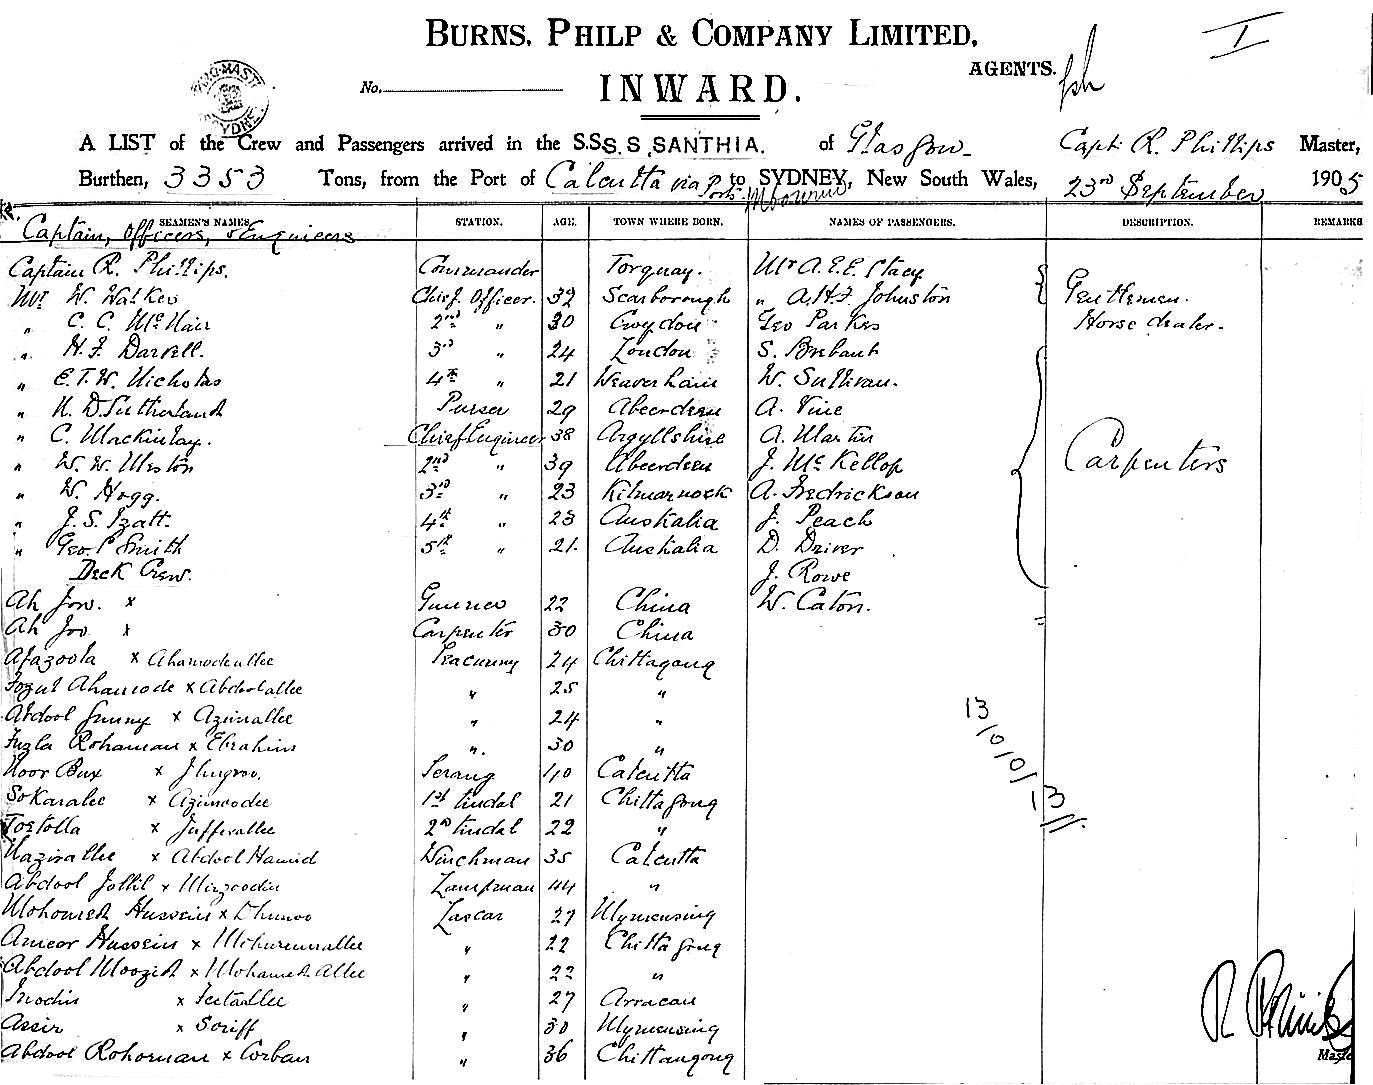 BURNS, PHILP & COMPANY LIMITED,
AGENTS.
I
No.
INWARD.
A LIST of the Crew and Passengers arrived in the S.S. S.S. SANTHIA. of Glasgow Capt. R. Phillips Master,
Burthen, 3353 Tons, from the Port of Calcutta via Ports to SYDNEY, New South Wales, 23rd September 1905
SEAMEN'S NAMES STATION. AGE. TOWN WHERE BORN. NAMES OF PASSENGERS. DESCRIPTION. REMARKS
Captain, Officers, & Engineers
Captain R. Phillips. Commander Torquay. Mr A. E. E. Stacy
Mr W. Walker Chief Officer. 32 Scarborough " A. H. F. Johnston Gentlemen.
" C. C. McNair 2nd " 30 Croydon Geo Parkes Horse dealer.
" H. F. Darvell. 3rd " 24 London S. Brebant
" E. T. W. Nicholas 4th " 21 Weaverham W. Sullivan.
" H. D. Sutherland Purser 29 Aberdeen A. Vine
" C. Mackinlay. Chief Engineer 38 Argyllshire A. Martin
" W. W. Weston 2nd " 39 Aberdeen J. McKellop Carpenters
" W. Hogg. 3rd " 23 Kilmarnock A. Fredrickson
" J. S. Izatt. 4th " 23 Australia J. Peach
" Geo. P. Smith 5th " 21. Australia D. Driver
Deck Crew. J. Rowe
Ah Jow. x 22 China W. Caton.
Ah Joo x Carpenter 30 China
Afazoola x Ahamodeallee Seacunny 24 Chittagong
Fozul Ahamode x Abdoolallee " 25 "
Abdool Gunny x Azimallee " 24 "
Fuzla Rohaman x Ebrahim " 30 "
Noor Bux x Serang 40 Calcutta
Sokaralee x Azimoodee 1st tindal 21 Chittagong
Tortolla x Jufferallee 2nd tindal 22 "
Nazirallee x Abdool Hamid Winchman 35 Calcutta
Abdool Jollil x Lampman 44 "
Mohomed Hussein x Lascar 27 Mymensing
Ameer Hussein x " 22 Chittagong
Abdool Moozid x Mohamed Allee " 22 "
x " 27 Arracan
Assir x Soriff " 30 Mymensing
Abdool Rohoman x Corban " 36 Chittangong
13/0/0/13//
Maste